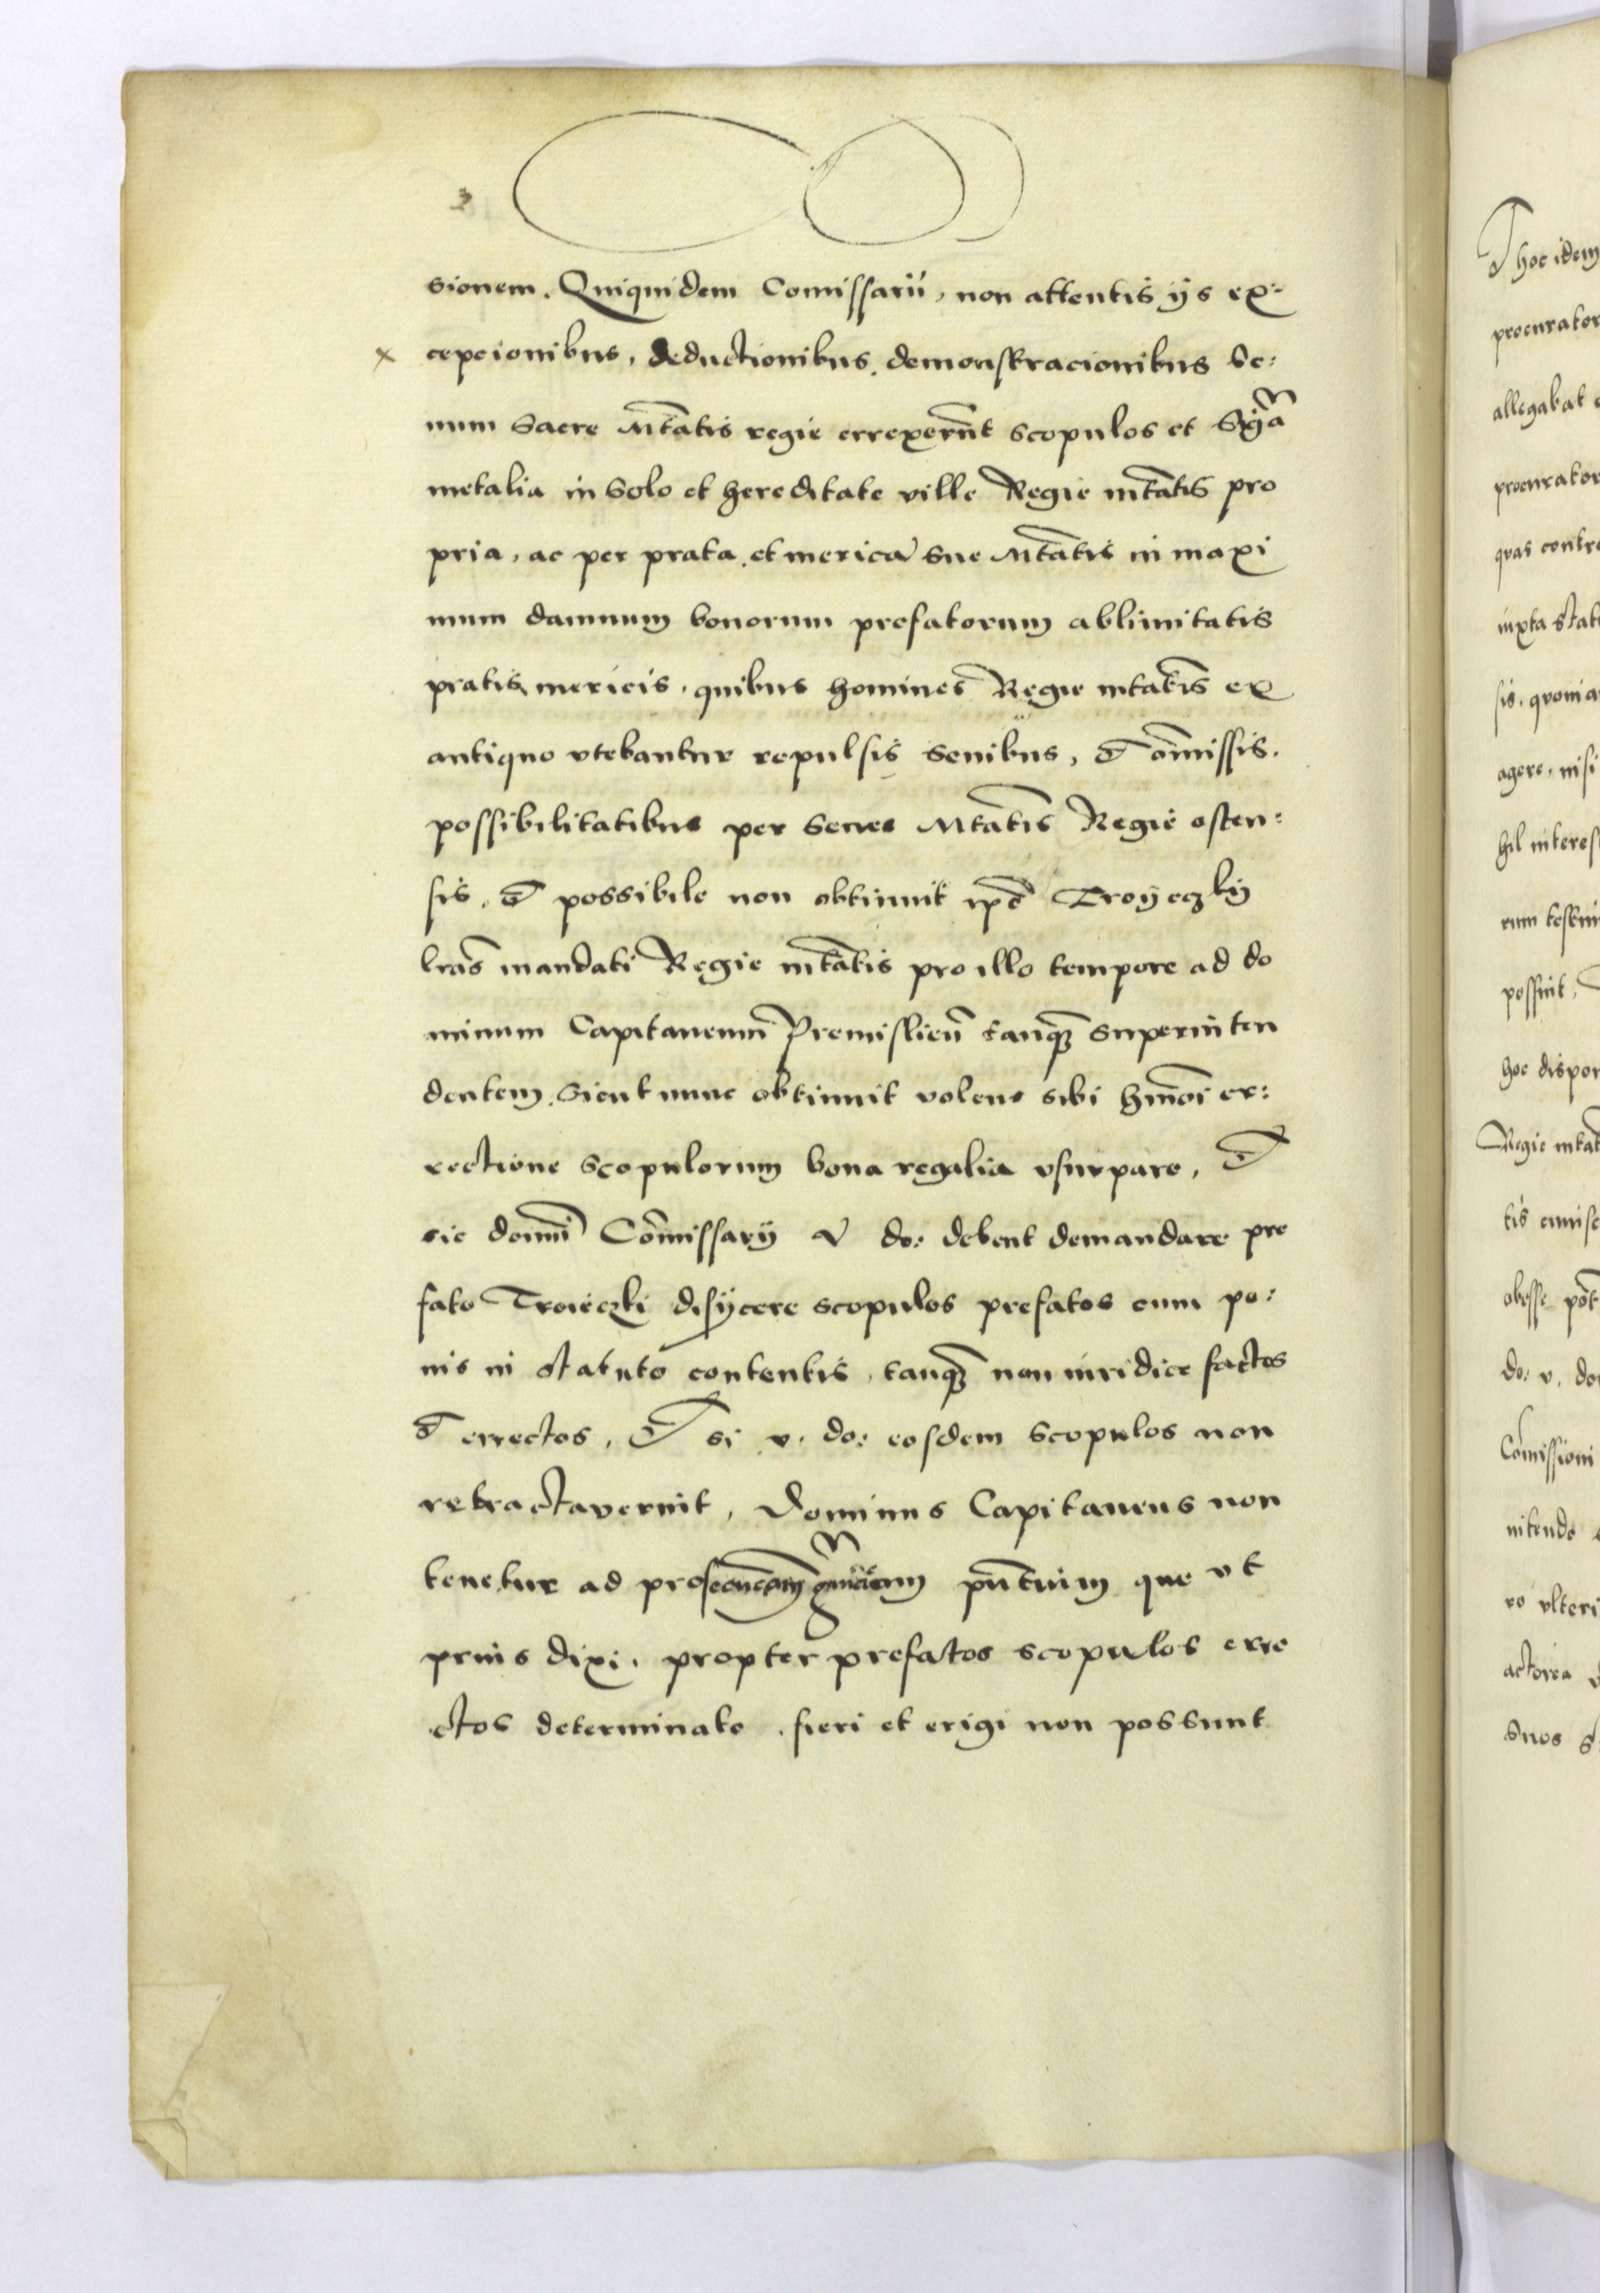 sionem. Quiquidem Comissarii, non attentis ijs ex=
x cepcionibus, deductionibus, demonstracionibus se=
num Sacre Mtatis regie errexerunt scopulos et Sigā
metalia in Solo et hereditate ville Regie mtatis pro
pria, ac per prata et merica sue Mtatis in maxi
mum damnum bonorum prefatorum ablimitatis
pratis mericis, quibus homines Regie mtatis ex
antiquo vtebantur repulsis senibus, et omissis.
possibilitatibus per senes Mtatis Regie osten=
sis, et possibile non obtinuit ipe Troyeczky
lras mandati Regie mtatis pro illo tempore ad do
minum Capitaneum Premislien tanq superinten
dentem, sicut nunc obtinuit volens sibi hmoi er=
rectione scopulorum bona regalia vsurpare, Et
sic domi Comissarij V do: debent demandare pre
fato Troieczki disijcere scopulos prefatos cum pe=
nis in statuto contentis, tanq non iuridice factos
et errectos, Et si v. do: eosdem scopulos non
retractaverint, Dominus Capitaneus non
tenetur ad que vt
prius dixi, propter prefatos scopulos erre
ctos determinate, fieri et erigi non possunt
hoc idem
procurator
allegabat
procurator
quas contra
iuxta stat
sis, quonia
agere, nisi
hil interes
possint,
hoc dispo
Regie mtat
do: v. do
Comissioni
nitendo
ro vlteri
actorea
suos